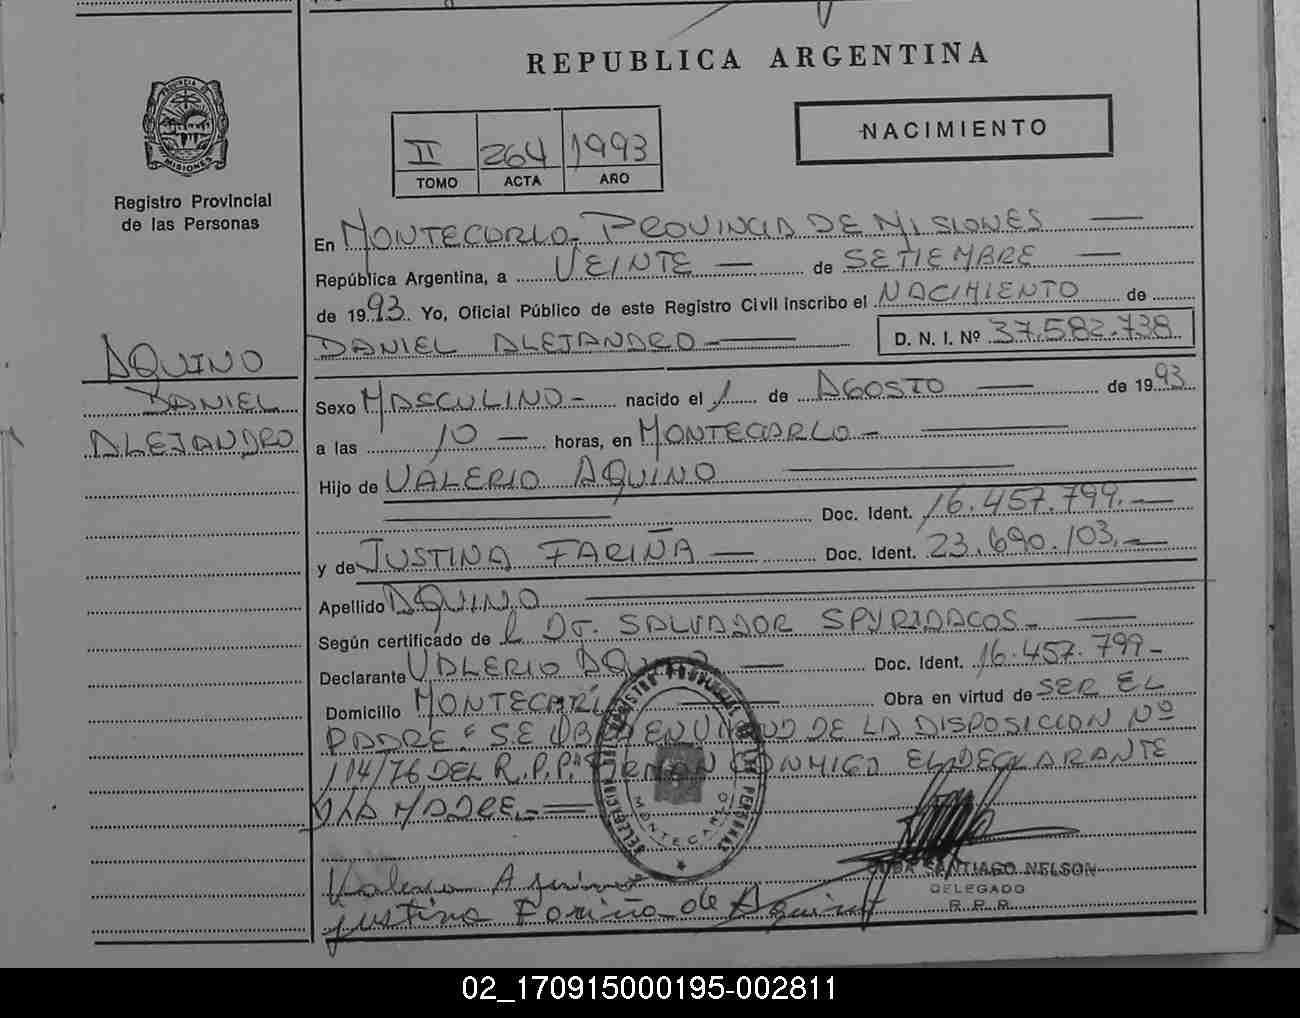 REPUBLICA ARGENTINA
PROVINCIA DE
MISIONES
Registro Provincial
de las Personas
II 264 1993
TOMO ACTA AÑO
NACIMIENTO
En MONTECARLO, PROVINCIA DE MISIONES
República Argentina, a VEINTE — de SETIEMBRE —
de 1993. Yo, Oficial Público de este Registro Civil inscribo el NACIMIENTO de
DANIEL ALEJANDRO — D. N. I. Nº 37.582.738
AQUINO
DANIEL
ALEJANDRO
Sexo MASCULINO - nacido el 1 de AGOSTO — de 1993
a las 10 — horas, en MONTECARLO -
Hijo de VALERIO AQUINO
Doc. Ident. 16.457.799.—
y de JUSTINA FARIÑA — Doc. Ident. 23.690.103.—
Apellido AQUINO
Según certificado de l Dr. SALVADOR SPYRIDACOS -
Declarante VALERIO AQUINO — Doc. Ident. 16.457.799 -
Domicilio MONTECARLO Obra en virtud de SER EL
PADRE. SE DISPOSICION Nº
114/76 DEL R.P.P. FIRMAN CONMIGO EL DECLARANTE
Y LA MADRE.-
DELEGACION DEL REGISTRO PROVINCIAL DE LAS PERSONAS
MONTECARLO
Valerio Aquino
Justina Fariña de Aquino
SANTIAGO NELSON
DELEGADO
R.P.P.
02_170915000195-002811